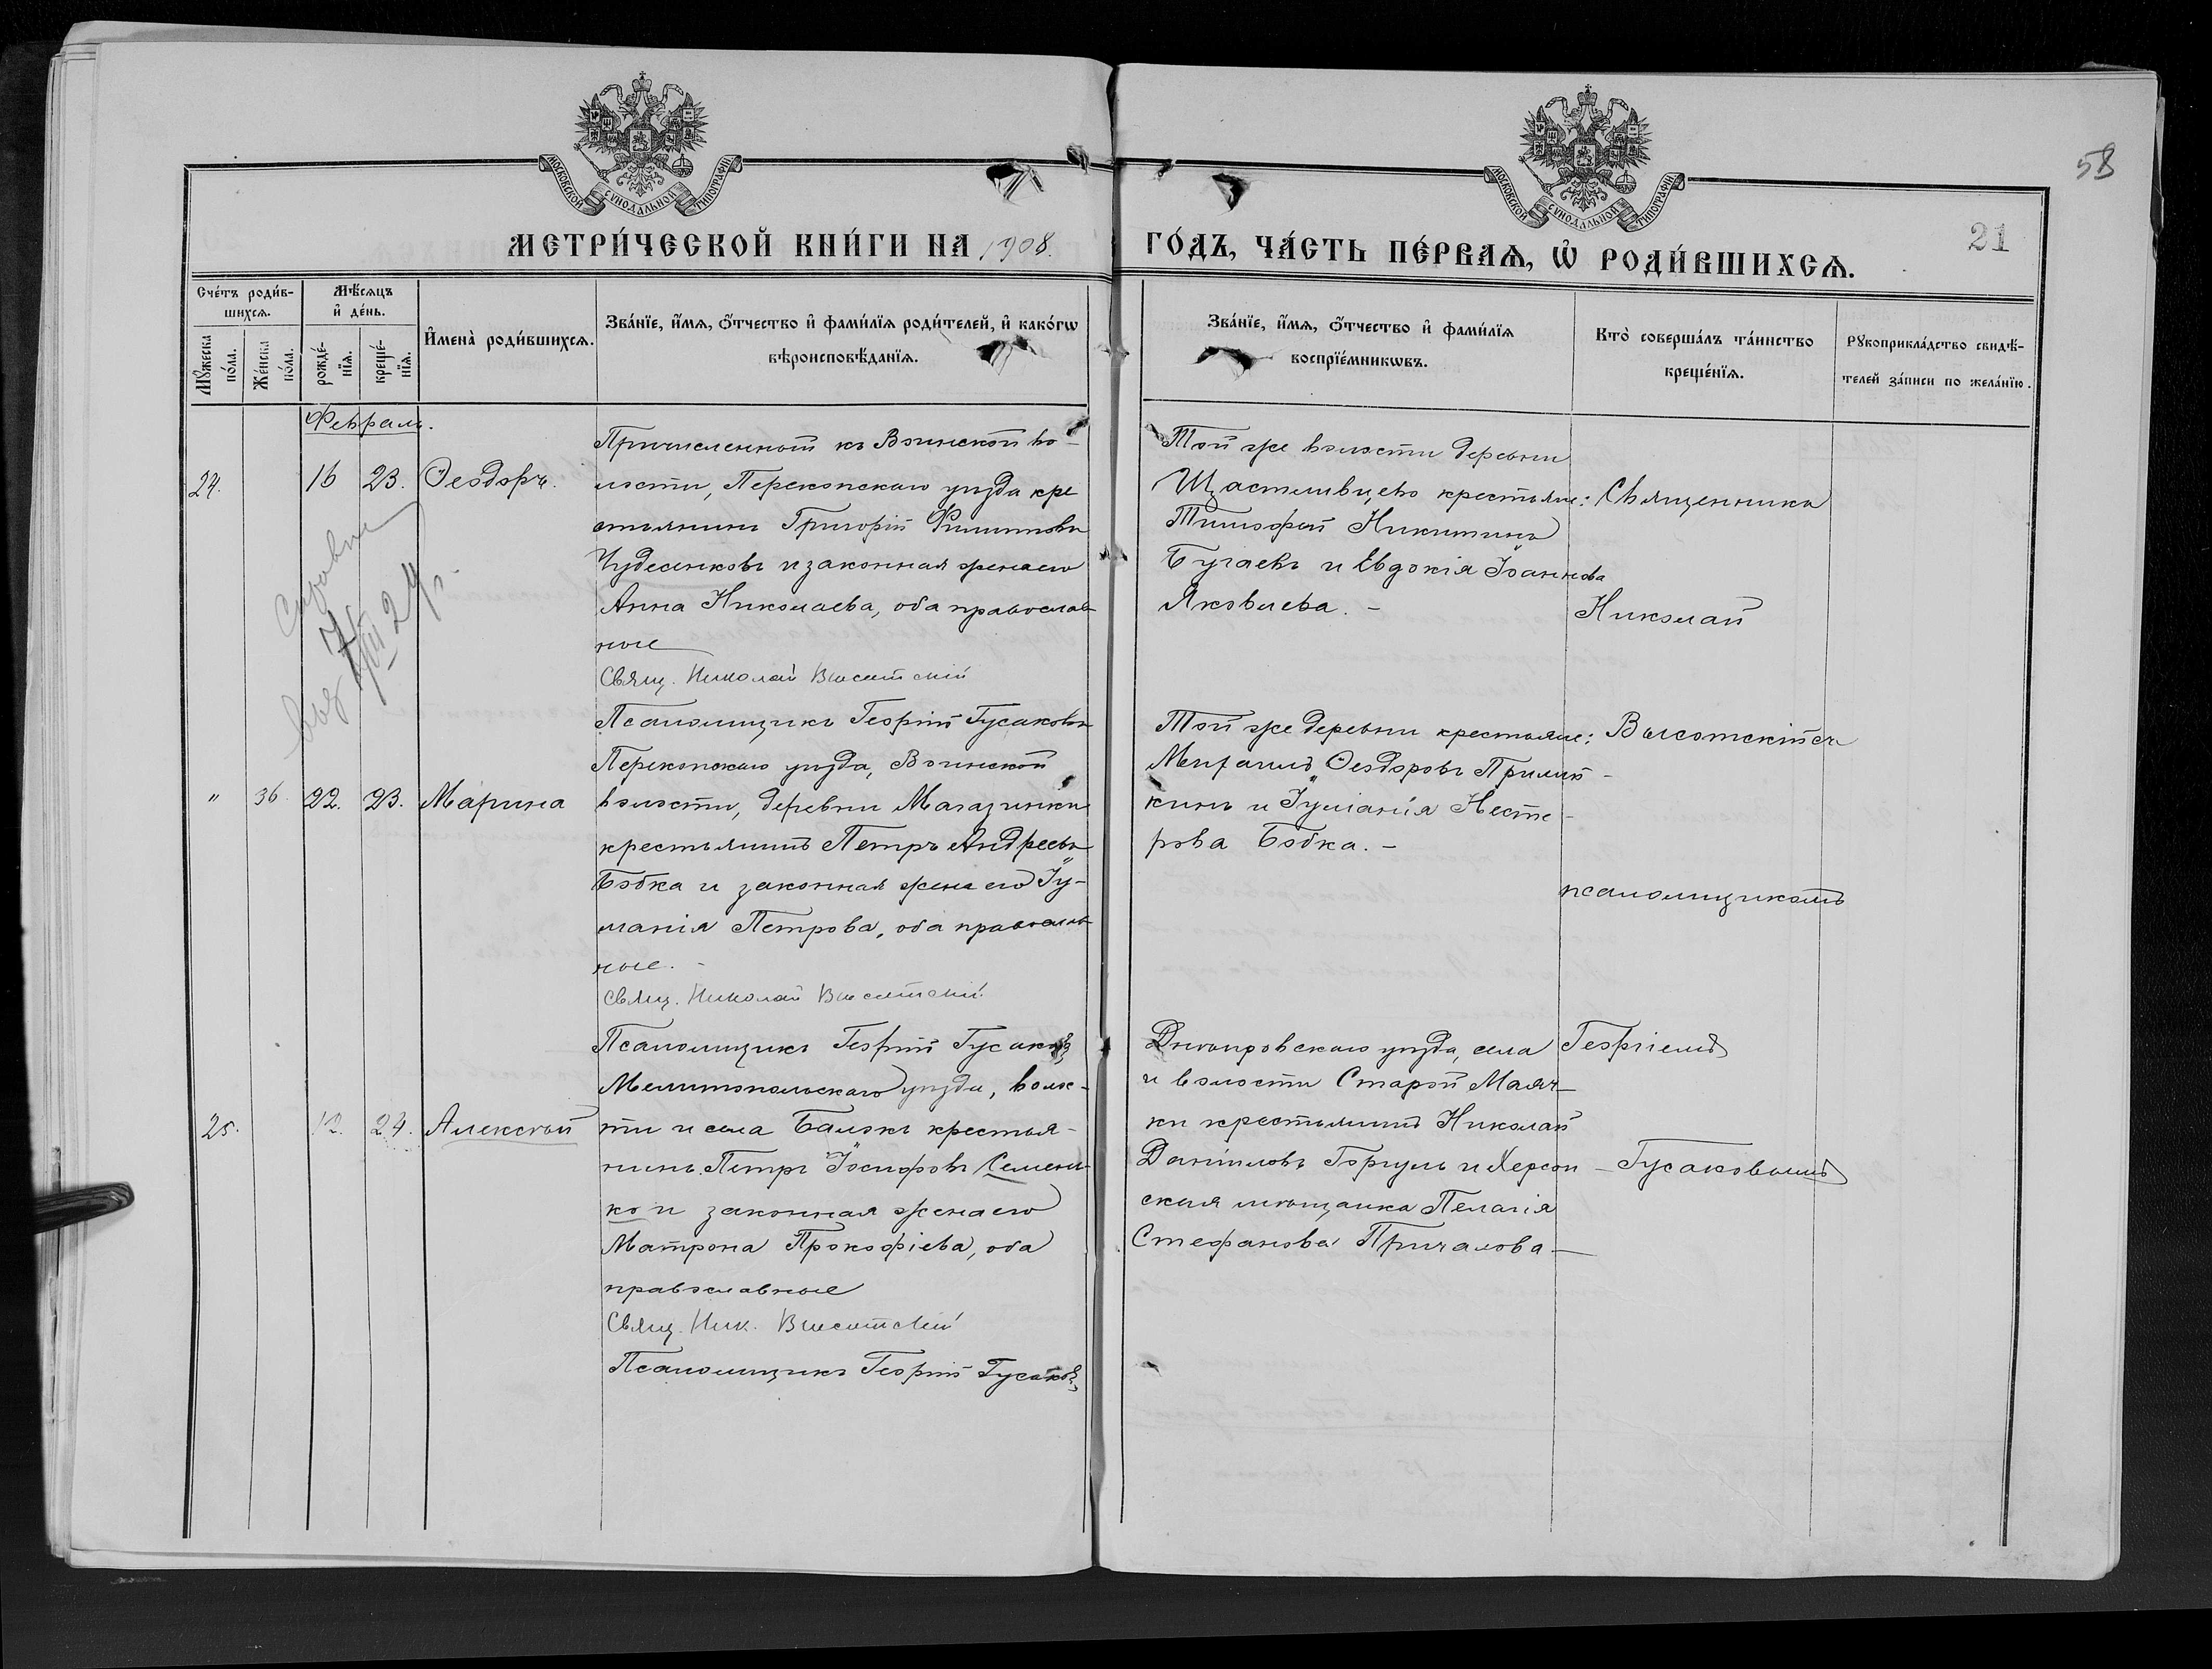 58
21
МОСКОВСКОЙ СѴНОДАЛЬНОЙ ТИПОГРАФІИ
МОСКОВСКОЙ СѴНОДАЛЬНОЙ ТИПОГРАФІИ
МЕТРИ́ЧЕСКОЙ КНИ́ГИ НА 1908.
ГО́ДЪ, ЧА́СТЬ ПЕ́РВАѦ, Ѡ҆ РОДИ́ВШИХСѦ.
Сче́тъ роди́в-
шихсѧ.
Мꙋ́жеска по́ла.
Же́нска по́ла.
Мѣ́сѧцъ
и҆ де́нь.
рожде́-
нїѧ.
креще́-
нїѧ.
И҆мена̀ роди́вшихсѧ.
Зва́нїе, и҆́мѧ, ѻ҆́тчество и҆ фами́лїѧ роди́телей, и҆ како́гѡ
вѣроисповѣ́данїѧ.
Зва́нїе, и҆́мѧ, ѻ҆́тчество и҆ фами́лїѧ
воспрїе́мникѡвъ.
Кто̀ соверша́лъ та́инство
креще́нїѧ.
Рꙋкоприкла́дство свидѣ́-
телей за́писи по жела́нїю.
Февраль.
24.
16
23.
Ѳеодоръ.
Причисленный къ Воинской во-
лости, Перекопскаго уѣзда кре
стьянинъ Григорій Филипповъ
Чудесенковъ и законная жена его
Анна Николаева, оба православ
ные
Свящ. Николай Высотскій
Псаломщикъ Георгій Гусаковъ
Той же волости деревни
Щастливцево крестьяне:
Тимофей Никитинъ
Бугаевъ и Евдокія Іоаннова
Яковлева. –
Священникъ
Николай
"
36.
22.
23.
Марина
Перекопскаго уѣзда, Воинской
волости, деревни Магазинки
крестьянинъ Петръ Андреевъ
Бобка и законная жена его Іу-
лианія Петрова, оба православ
ные. –
Свящ. Николай Высотскій
Псаломщикъ Георгій Гусаковъ
Той же деревни крестьяне:
Михаилъ Ѳеодоровъ Прилип-
кинъ и Іуліанія Несте-
рова Бобка. –
Высотскій съ
псаломщикомъ
25.
12.
24.
Алексѣй
Мелитопольскаго уѣзда, волос-
ти и села Балокъ крестья-
нинъ Петръ Іосифовъ Семен-
ко и законная жена его
Матрона Прокофіева, оба
православные
Свящ. Ник. Высотскій
Псаломщикъ Георгій Гусаковъ
Днѣпровскаго уѣзда, села
и волости Старой Маяч-
ки крестьянинъ Николай
Даніиловъ Горгуль и Херсон-
ская мѣщанка Пелагія
Стефанова Причалова –
Георгіемъ
Гусаковымъ